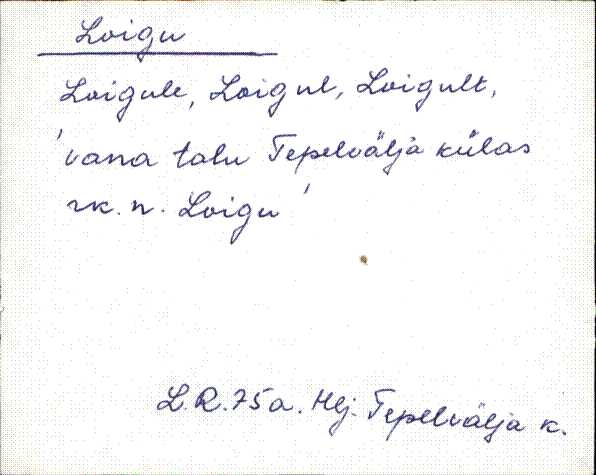 Loigu
Loigule, Loigul, Loigult,
'vana talu Tepelvälja külas
rk. n. Loigu'
L.R. 75a. Hlj. Tepelvälja k.